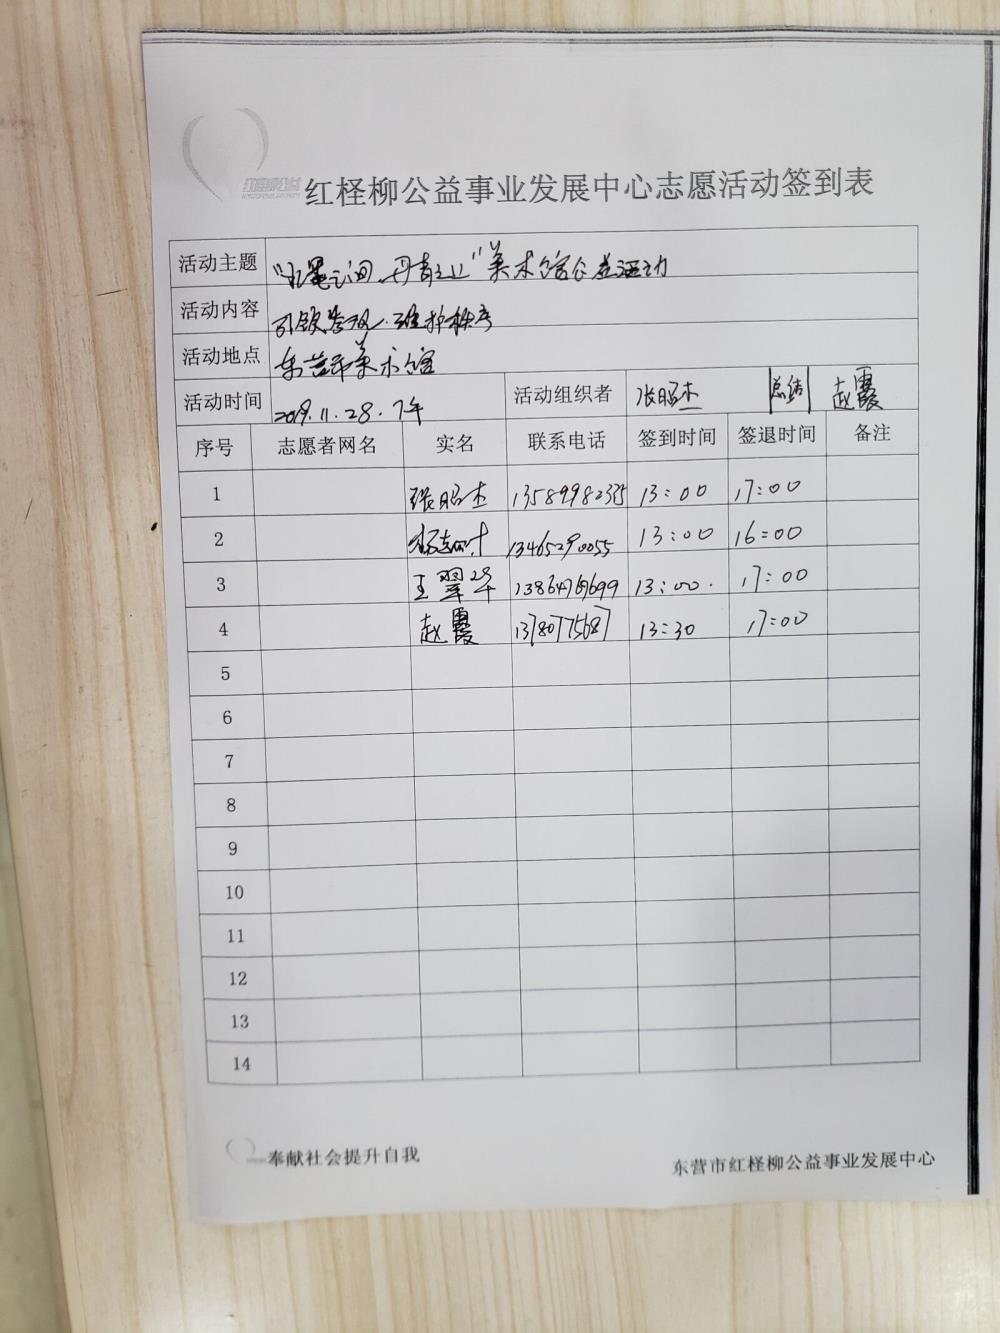 红柽柳公益
红柽柳公益事业发展中心志愿活动签到表
活动主题 "水墨之间、丹青之上"美术馆公益活动
活动内容 引领参观、维护秩序
活动地点 东营市美术馆
活动时间 2019.11.28.下午 活动组织者 张昭杰 总结 赵霞
序号 志愿者网名 实名 联系电话 签到时间 签退时间 备注
1 张昭杰 13589982335 13:00 17:00
2 13465290055 13:00 16:00
3 王翠华 13:00. 17:00
4 赵霞 13780775687 13:30 17:00
5
6
7
8
9
10
11
12
13
14
奉献社会提升自我
东营市红柽柳公益事业发展中心